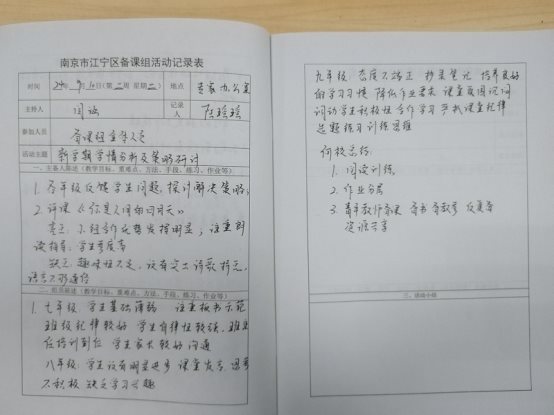 南京市江宁区备课组活动记录表
时间 年9月10日(第二周 星期二) 地点 语文办公室
主持人 闫 记录人 陈瑶瑶
参加人员 备课组全体人员
活动主题 新学期学情分析及策略研讨
一、主备人陈述(教学目标、重难点、方法、手段、练习、作业等)
1. 各年级反馈学生问题,探讨解决策略。
2. 评课《你是人间的四月天》
亮点:小组合作优势发挥明显;注重朗
读指导,学生参度高
缺点:趣味性不足,没有突出诗歌特点,
语言不够通俗
二、组员陈述(教学目标、重难点、方法、手段、练习、作业等)
1. 七年级:学生基础薄弱 注重板书示范
班级纪律较好 学生自律性较强,班主
任培训到位 学生家长较好沟通
八年级:学生没有明显进步 课堂发言、思考
不积极 缺乏学习兴趣
九年级:态度不端正 抄笔记 培养良好
的学习习惯 降低作业要求 课堂及
调动学生积极性 合作学习 课堂纪律
练习 训练思维
何校总结:
1. 阅读训练
2. 作业分层
3. 青年教师备课 备书 备教参 反复备
资源共享
三、活动小结